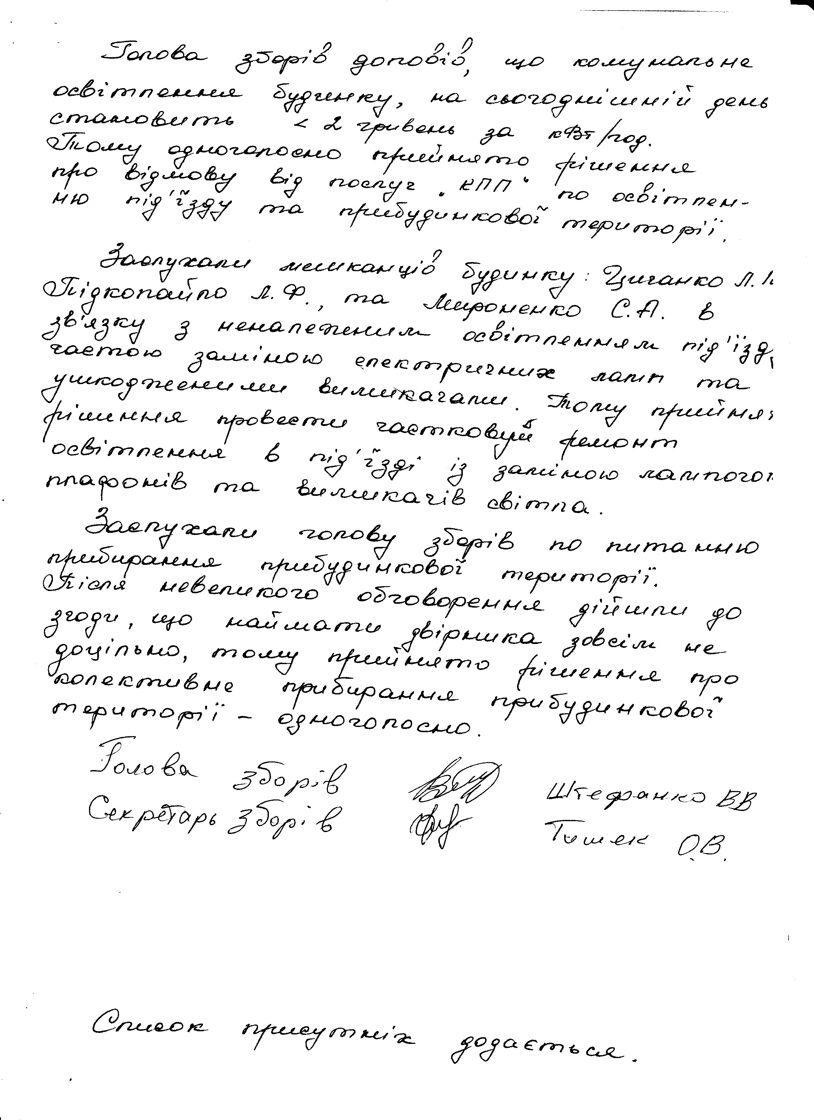 Голова зборів доповів, що комунальне
освітлення будинку, на сьогоднішній день
становить < 2 гривень за кВт/год.
Тому одноголосно прийнято рішення
про відмову від послуг "КПП" по освітлен-
ню під'їзду та прибудинкової території.
Заслухали мешканців будинку: Циганко Л.
Підкопайло Л.Ф., та Мироненко С.А. в
зв'язку з неналежним освітленням під'їзд
частою заміною електричних ламп та
ушкодженими вимикачами. Тому прийня
рішення провести частковий ремонт
освітлення в під'їзді із заміною лампочо
плафонів та вимикачів світла.
Заслухали голову зборів по питанню
прибирання прибудинкової території.
Після невеликого обговорення дійшли до
згоди, що наймати двірника зовсім не
доцільно, тому прийнято рішення про
колективне прибирання прибудинкової
території – одноголосно.
Голова зборів Штефанко ВВ
Секретарь зборів Тишек О.В.
Список присутніх додається.